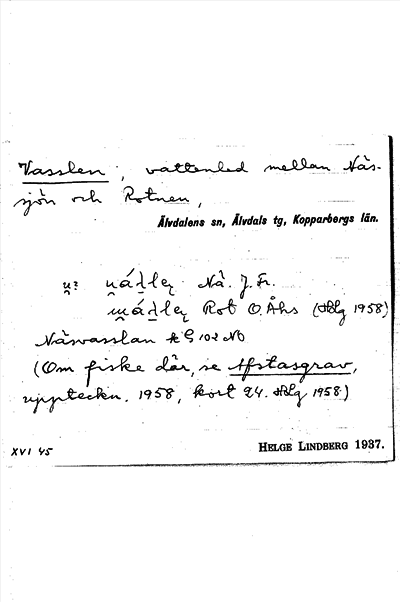 Vasslen, vattenled mellan Näs-
sjön och Rotnen,
Älvdalens sn, Älvdals tg, Kopparbergs län.
Nä. J. Fr.
Rot O. Åhs (HLbg 1958)
Näsvasslan k G 102 NO
(Om fiske där, se Afstasgrav,
uppteckn. 1958, kort 24. HLbg 1958)
XVI 45
HELGE LINDBERG 1937.